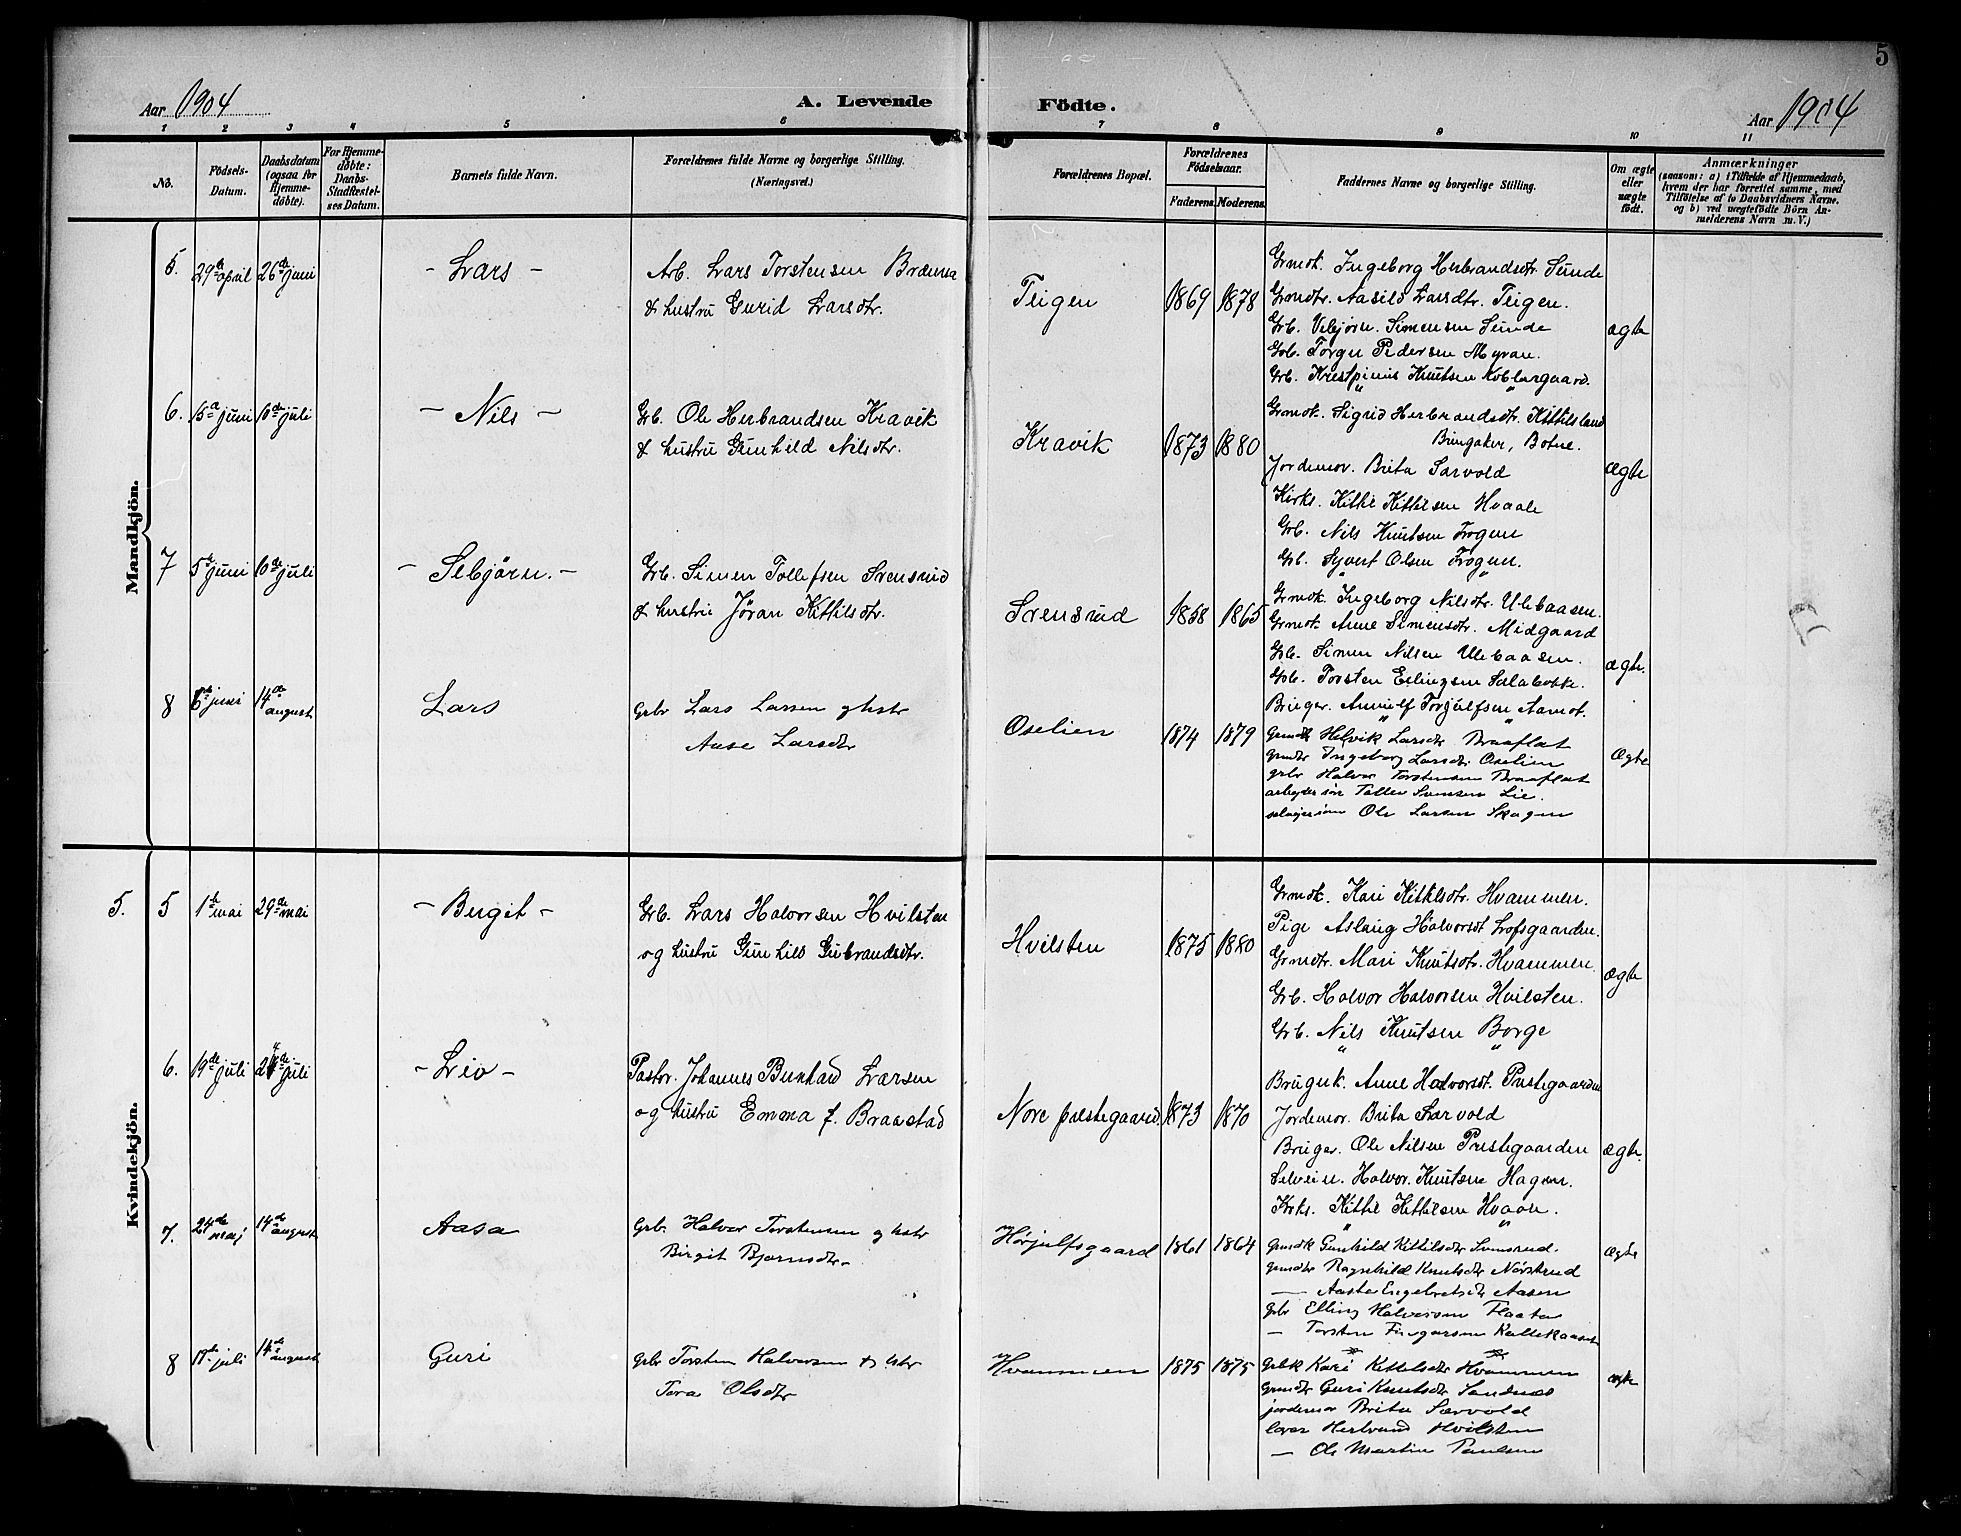 5
Aar 1904
A. Levende
Födte.
Aar 1904
1 2 3 4 5 6 7 8 9 10 11
No.
Födsels-
Datum.
Daabsdatum
(ogsaa for
Hjemme-
döbte).
For Hjemme-
döbte:
Daabs-
Stadfæstel-
ses Datum.
Barnets fulde Navn.
Forældrenes fulde Navne og borgerlige Stilling.
(Næringsvei.)
Forældrenes Bopæl.
Forældrenes
Födselsaar.
Faderens. Moderens.
Faddernes Navne og borgerlige Stilling.
Om ægte
eller
uægte
födt.
Anmærkninger
(saasom: a) i Tilfælde af Hjemmedaab,
hvem der har forrettet samme, med
Tilföielse af to Daabsvidners Navne,
og b) ved uægtefödte Börn An-
melderens Navn m. V.)
Mandkjön.
5. 29de april 26de juni - Lars -
Arb. Lars Torstensen Bræmsa
& hustru Gurid Larsdtr.
Teigen 1869 1878
Grmdk. Ingeborg Herbrandsdtr. Sunde
Grmdtr. Aasild Larsdtr. Teigen.
Grb. Vebjørn Simensen Sunde
Grb. Torger Pedersen Myran.
Grb. Krestpinus Knutsen Koblergaard.
ægte
6. 15de juni 10de juli - Nils -
Grb. Ole Herbrandsen Kravik
& hustru Gunhild Nilsdtr.
Kravik 1873 1880
Grmdk. Sigrid Herbrandsdtr. Kittilsland
Bringaker, Botne.
Jordemor. Brita Sarvold
Kirks. Kittil Kittilsen Hvaale
Grb. Nils Knutsen Frogun
Grb. Syvert Olsen Frogun.
ægte
7 5te juni 10de juli - Sebjørn. -
Grb. Simen Tollefsen Svensrud
& hustru Jøran Kittilsdtr.
Svensrud 1858 1865
Grmdk. Ingeborg Nilsdtr. Ulebaasen.
Grmdk. Anne Simensdtr. Midgaard
Grb. Simen Nilsen Ulebaasen.
Grb. Torsten Erlingsen Salabokk.
Bruger. Anniulf Torjulfsen Aamot.
ægte.
8 6te juni 14de august Lars
grbr Lars Larsen og hstr
Aase Larsdtr
Oselien 1874 1879
grmdk Helvik Larsdtr Braaflat
grmdtr Ingeborg Larsdtr Oselien
grbr Halvor Torstensen Braaflat
arbeidersøn Tollev Svensen Lie.
selveiersøn Ole Larsen Skogen
Ægte
Kvindekjön.
5. 5 1ste mai 29de mai - Birgit -
Grb. Lars Halvorsen Hvilsten
og hustru Gunhild Gubrandsdtr.
Hvilsten 1875 1880
Grmdk. Kari Kittilsdtr. Hvammen.
Pige Aslaug Halvorsdt. Lofsgaarden.
Grmdtr. Mari Knutsdtr. Hvammen
Grb. Halvor Halvorsen Hvilsten.
Grb. Nils Knutsen Borge
ægte
6. 19de juli 24de juli - Liv -
Pastor. Johannes Bunhard Larsen
og hustru Emma f. Braastad
Nore præstegaard. 1873 1870
Brugerk. Anne Halvorsdt. Prestegaarden
Jordemor. Brita Særvold
Bruger. Ole Nilsen Prestegaarden
Selveier. Halvor Knutsen Hagen.
Kirks. Kittil Kittilsen Hvaale.
ægte.
7. 24de maj 14de august Aasa
Grb. Halvor Torstensen og hstr
Birgit Bjørnsdtr.
Hørjulfsgaard 1861 1864
grmdk Gunhild Kittilsdtr Svensrud.
grmdtr Ragnhild Knutsdtr Nørsterud
— Aasta Engebretsdtr Aasen
grb Elling Halvorsen Flaata
— Torsten Fingarsen Kallekaaset
ægte
8 17de juli 14de august Guri
grbr Torsten Halvorsen & hstr
Tora Olsdtr
Hvammen 1875 1875
grbk Kari Kittilsdtr Hvammen
grmdtr Guri Knutsdtr Sandnes
jordemor Brita Særvold
lærer Herbrand Hvilsten
— Ole Martin Paulsen
ægte